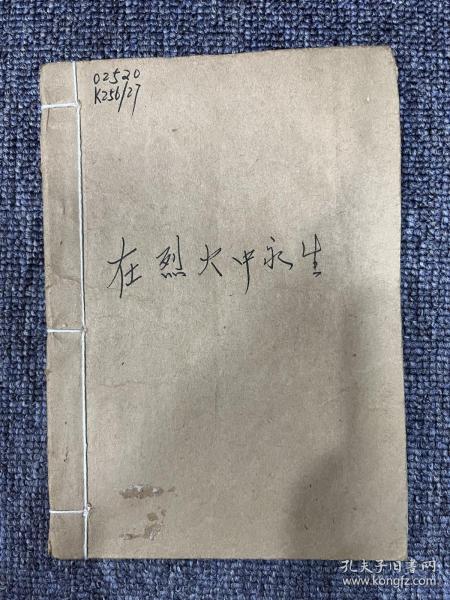 02520
K256/27
在烈火中永生
孔夫子旧书网
www.kongfz.com